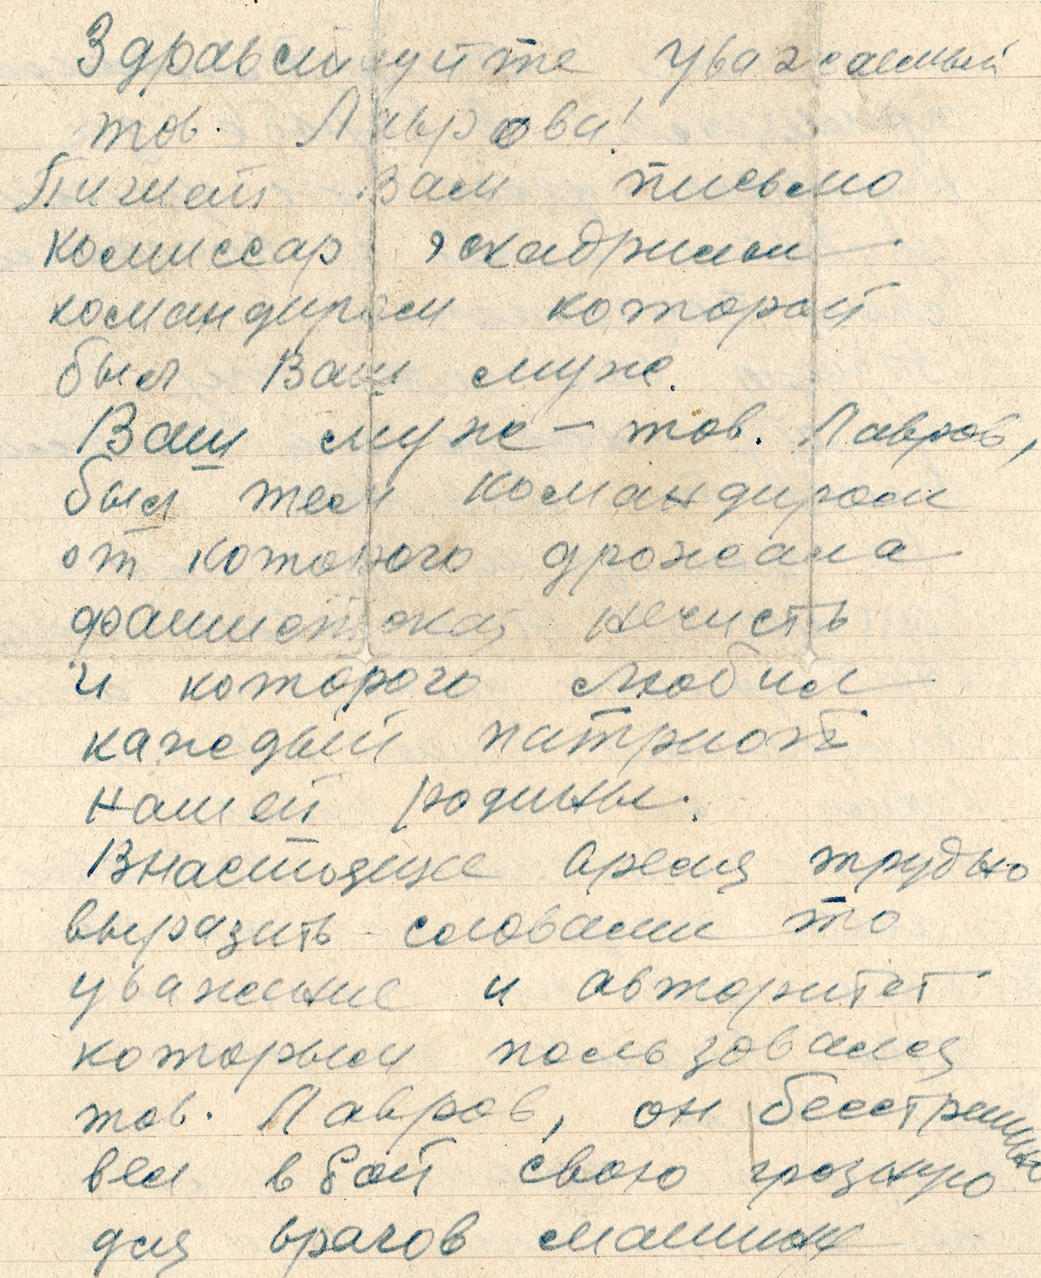 Здравствуйте уважаемый
тов. Лаврова!
Пишет Вам письмо
комиссар эскадрильи
командиром которой
был Ваш муж.
Ваш муж – тов. Лавров,
был тем командиром
от которого дрожала
фашистская нечисть
и которого любил
каждый патриот
нашей родины.
Внастоящее время трудно
выразить словами то
уважение и авторитет
которым пользовался
тов. Лавров, он бесстрашно
вел в бой свою грозную
для врагов машину